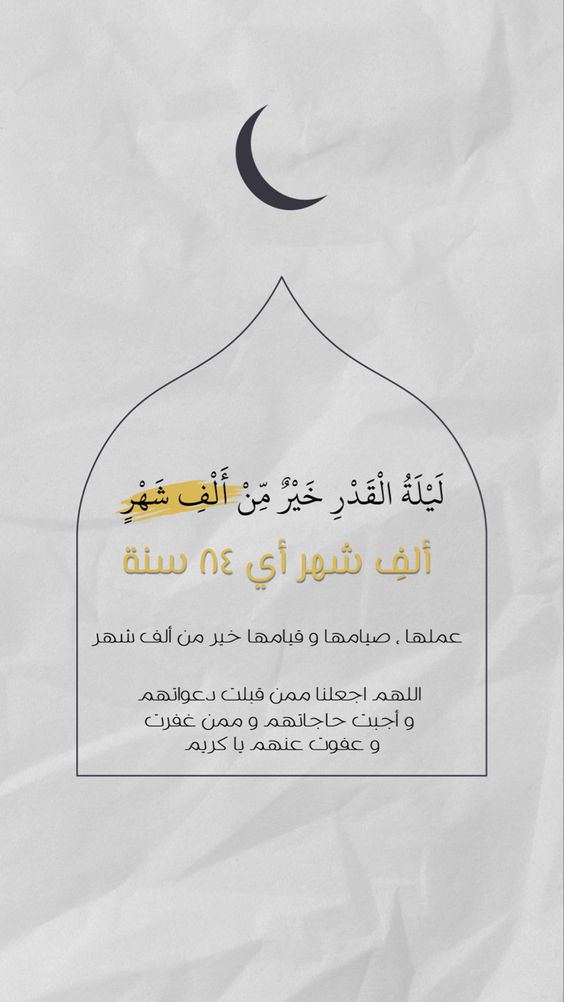 لَيْلَةُ الْقَدْرِ خَيْرٌ مِّنْ أَلْفِ شَهْرٍ
ألفِ شهر أي ٨٤ سنة
عملها ، صيامها و قيامها خير من ألف شهر
اللهم اجعلنا ممن قبلت دعواتهم
و أجبت حاجاتهم و ممن غفرت
و عفوت عنهم يا كريم